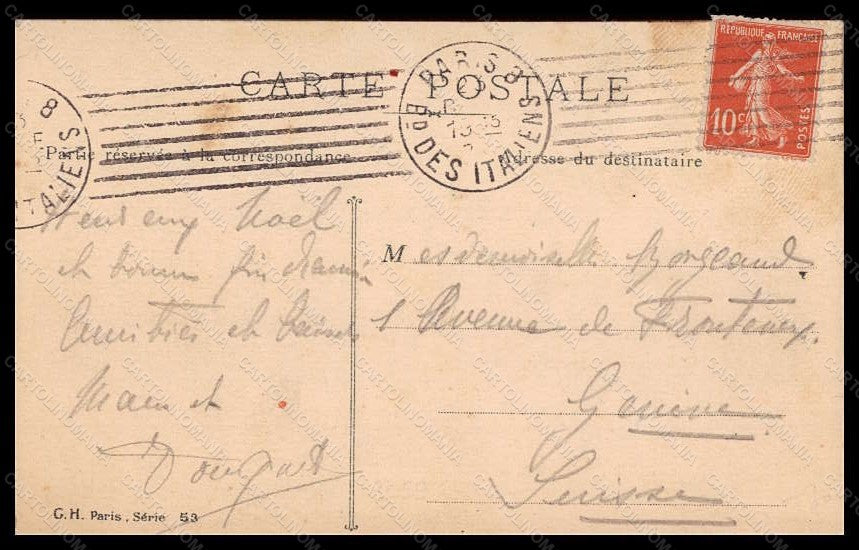 CARTE POSTALE
RÉPUBLIQUE FRANÇAISE
10c
POSTES
PARIS 8
Bd DES ITALIENS
8
ITALIENS
Partie réservée à la correspondance
Adresse du destinataire
Noël
et bonne fin d'année
Amitiés et baisers
et
Mesdemoiselles Borgeaud
1 Avenue de Frontenex
Genève
Suisse
G.H. Paris, Série 53
CARTOLINOMANIA